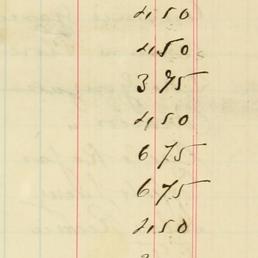 4 50
4 50
3 75
4 50
6 75
6 75
4 50